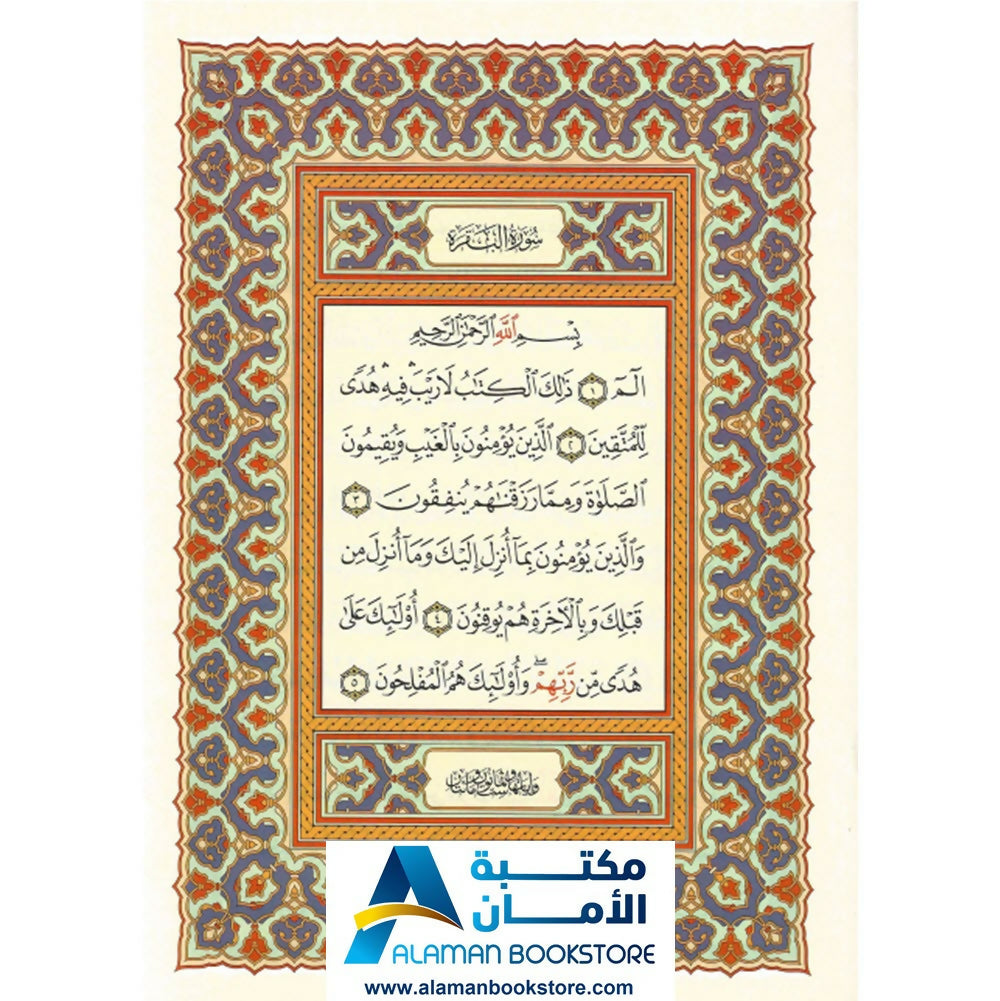 سُورَةُ الْبَقَرَةِ
بِسْمِ ٱللَّهِ ٱلرَّحْمَٰنِ ٱلرَّحِيمِ
الٓمٓ ١ ذَٰلِكَ ٱلْكِتَٰبُ لَا رَيْبَ ۛ فِيهِ ۛ هُدًى
لِّلْمُتَّقِينَ ٢ ٱلَّذِينَ يُؤْمِنُونَ بِٱلْغَيْبِ وَيُقِيمُونَ
ٱلصَّلَوٰةَ وَمِمَّا رَزَقْنَٰهُمْ يُنفِقُونَ ٣
وَٱلَّذِينَ يُؤْمِنُونَ بِمَآ أُنزِلَ إِلَيْكَ وَمَآ أُنزِلَ مِن
قَبْلِكَ وَبِٱلْءَاخِرَةِ هُمْ يُوقِنُونَ ٤ أُو۟لَٰٓئِكَ عَلَىٰ
هُدًى مِّن رَّبِّهِمْ ۖ وَأُو۟لَٰٓئِكَ هُمُ ٱلْمُفْلِحُونَ ٥
وآياتها مائتان وست وثمانون
مكتبة
الأمان
ALAMAN BOOKSTORE
www.alamanbookstore.com